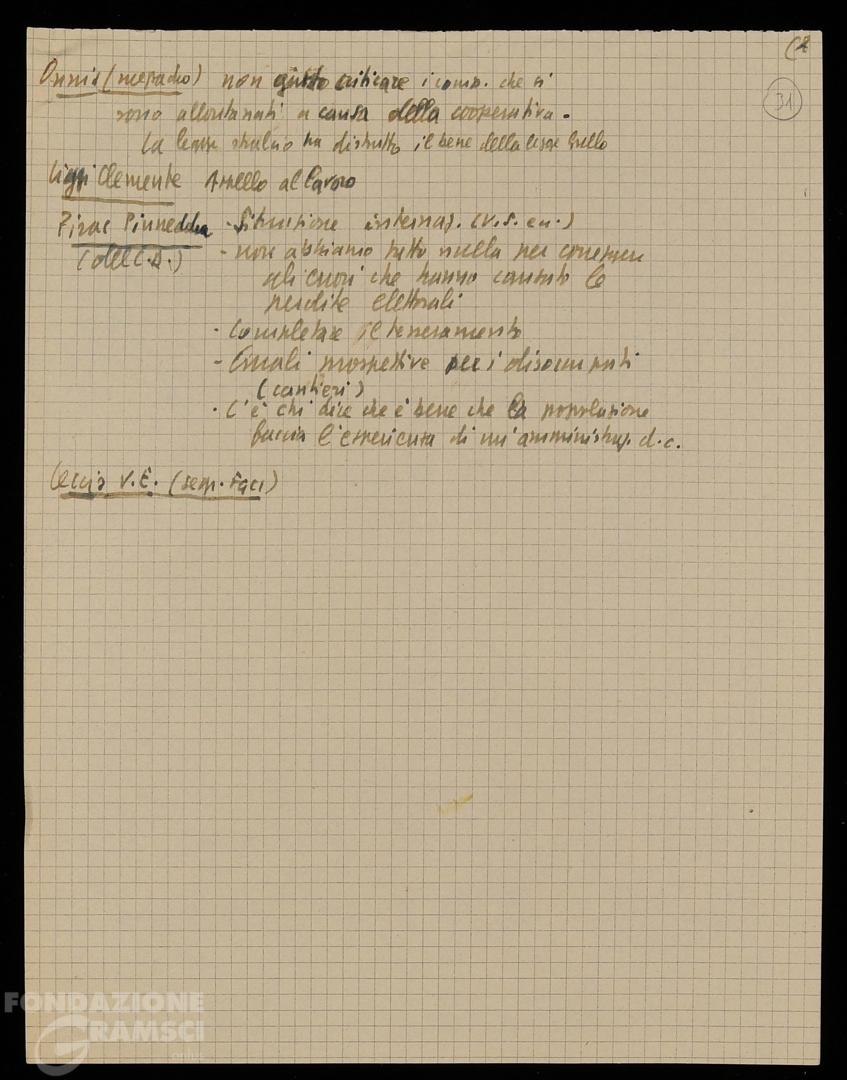 (2
31
Onnis (mezadro) non giusto criticare i comp. che si
sono allontanati a causa della cooperativa.
La legge stralcio ha distrutto il bene della legge Gullo
Liggi Clemente Anello al lavoro
Piras Pinnedda - Situazione internaz. (U.S. ecc.)
(del C.D.) - non abbiamo fatto nulla per conoscere
gli errori che hanno causato le
perdite elettorali
- Completare il tesseramento
- Quali prospettive per i disoccupati
(cantieri)
- C'è chi dice che è bene che la popolazione
faccia l'esperienza di un'amministraz. d.c.
V.E. (segr. FGCI)
FONDAZIONE
GRAMSCI
onlus